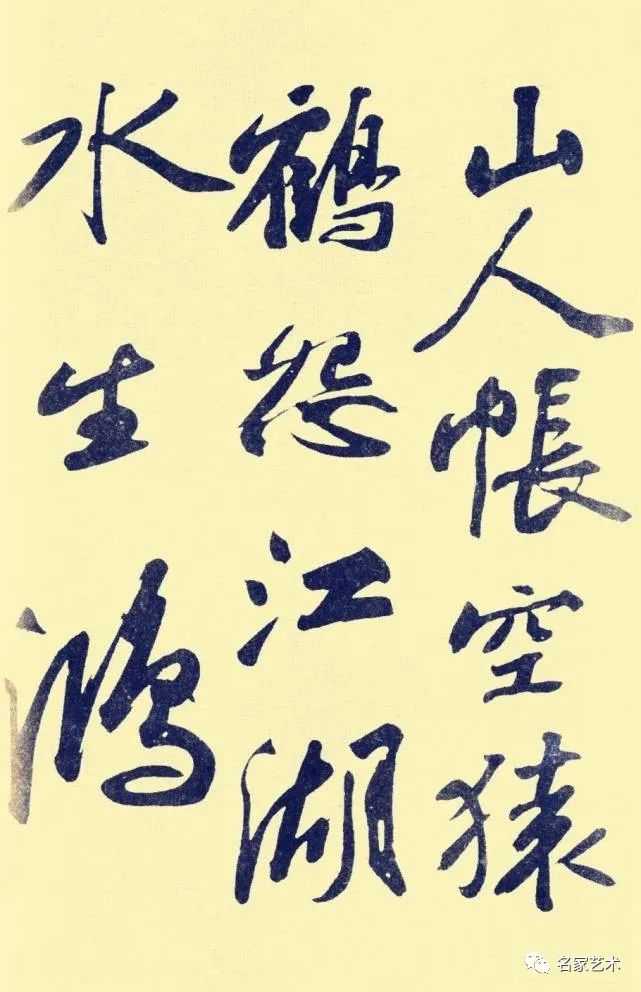 山人帳空猿
鶴怨江湖
水生鴻
名家艺术